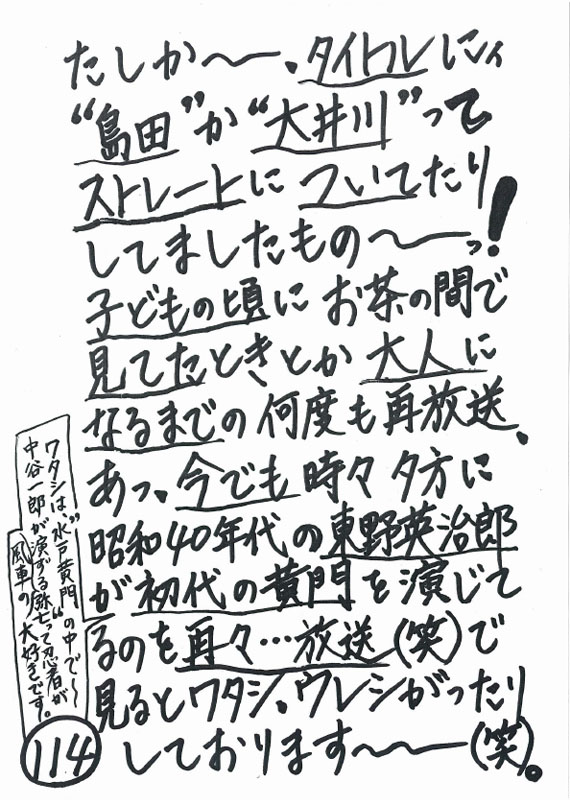 たしか〜―、タイトルにィ
“島田”か“大井川”って
ストレートについてたり
してましたもの〜―っ!
子どもの頃にお茶の間で
見てたときとか大人に
なるまでの何度も再放送、
あっ、今でも時々夕方に
昭和40年代の東野英治郎
が初代の黄門を演じて
るのを再々…放送(笑)で
見るとワタシ、ウレシがったり
しております〜〜―(笑)。
ワタシは、“水戸黄門”の中で〜
中谷一郎が演ずる弥七って忍者が
風車の
大好きです。
114